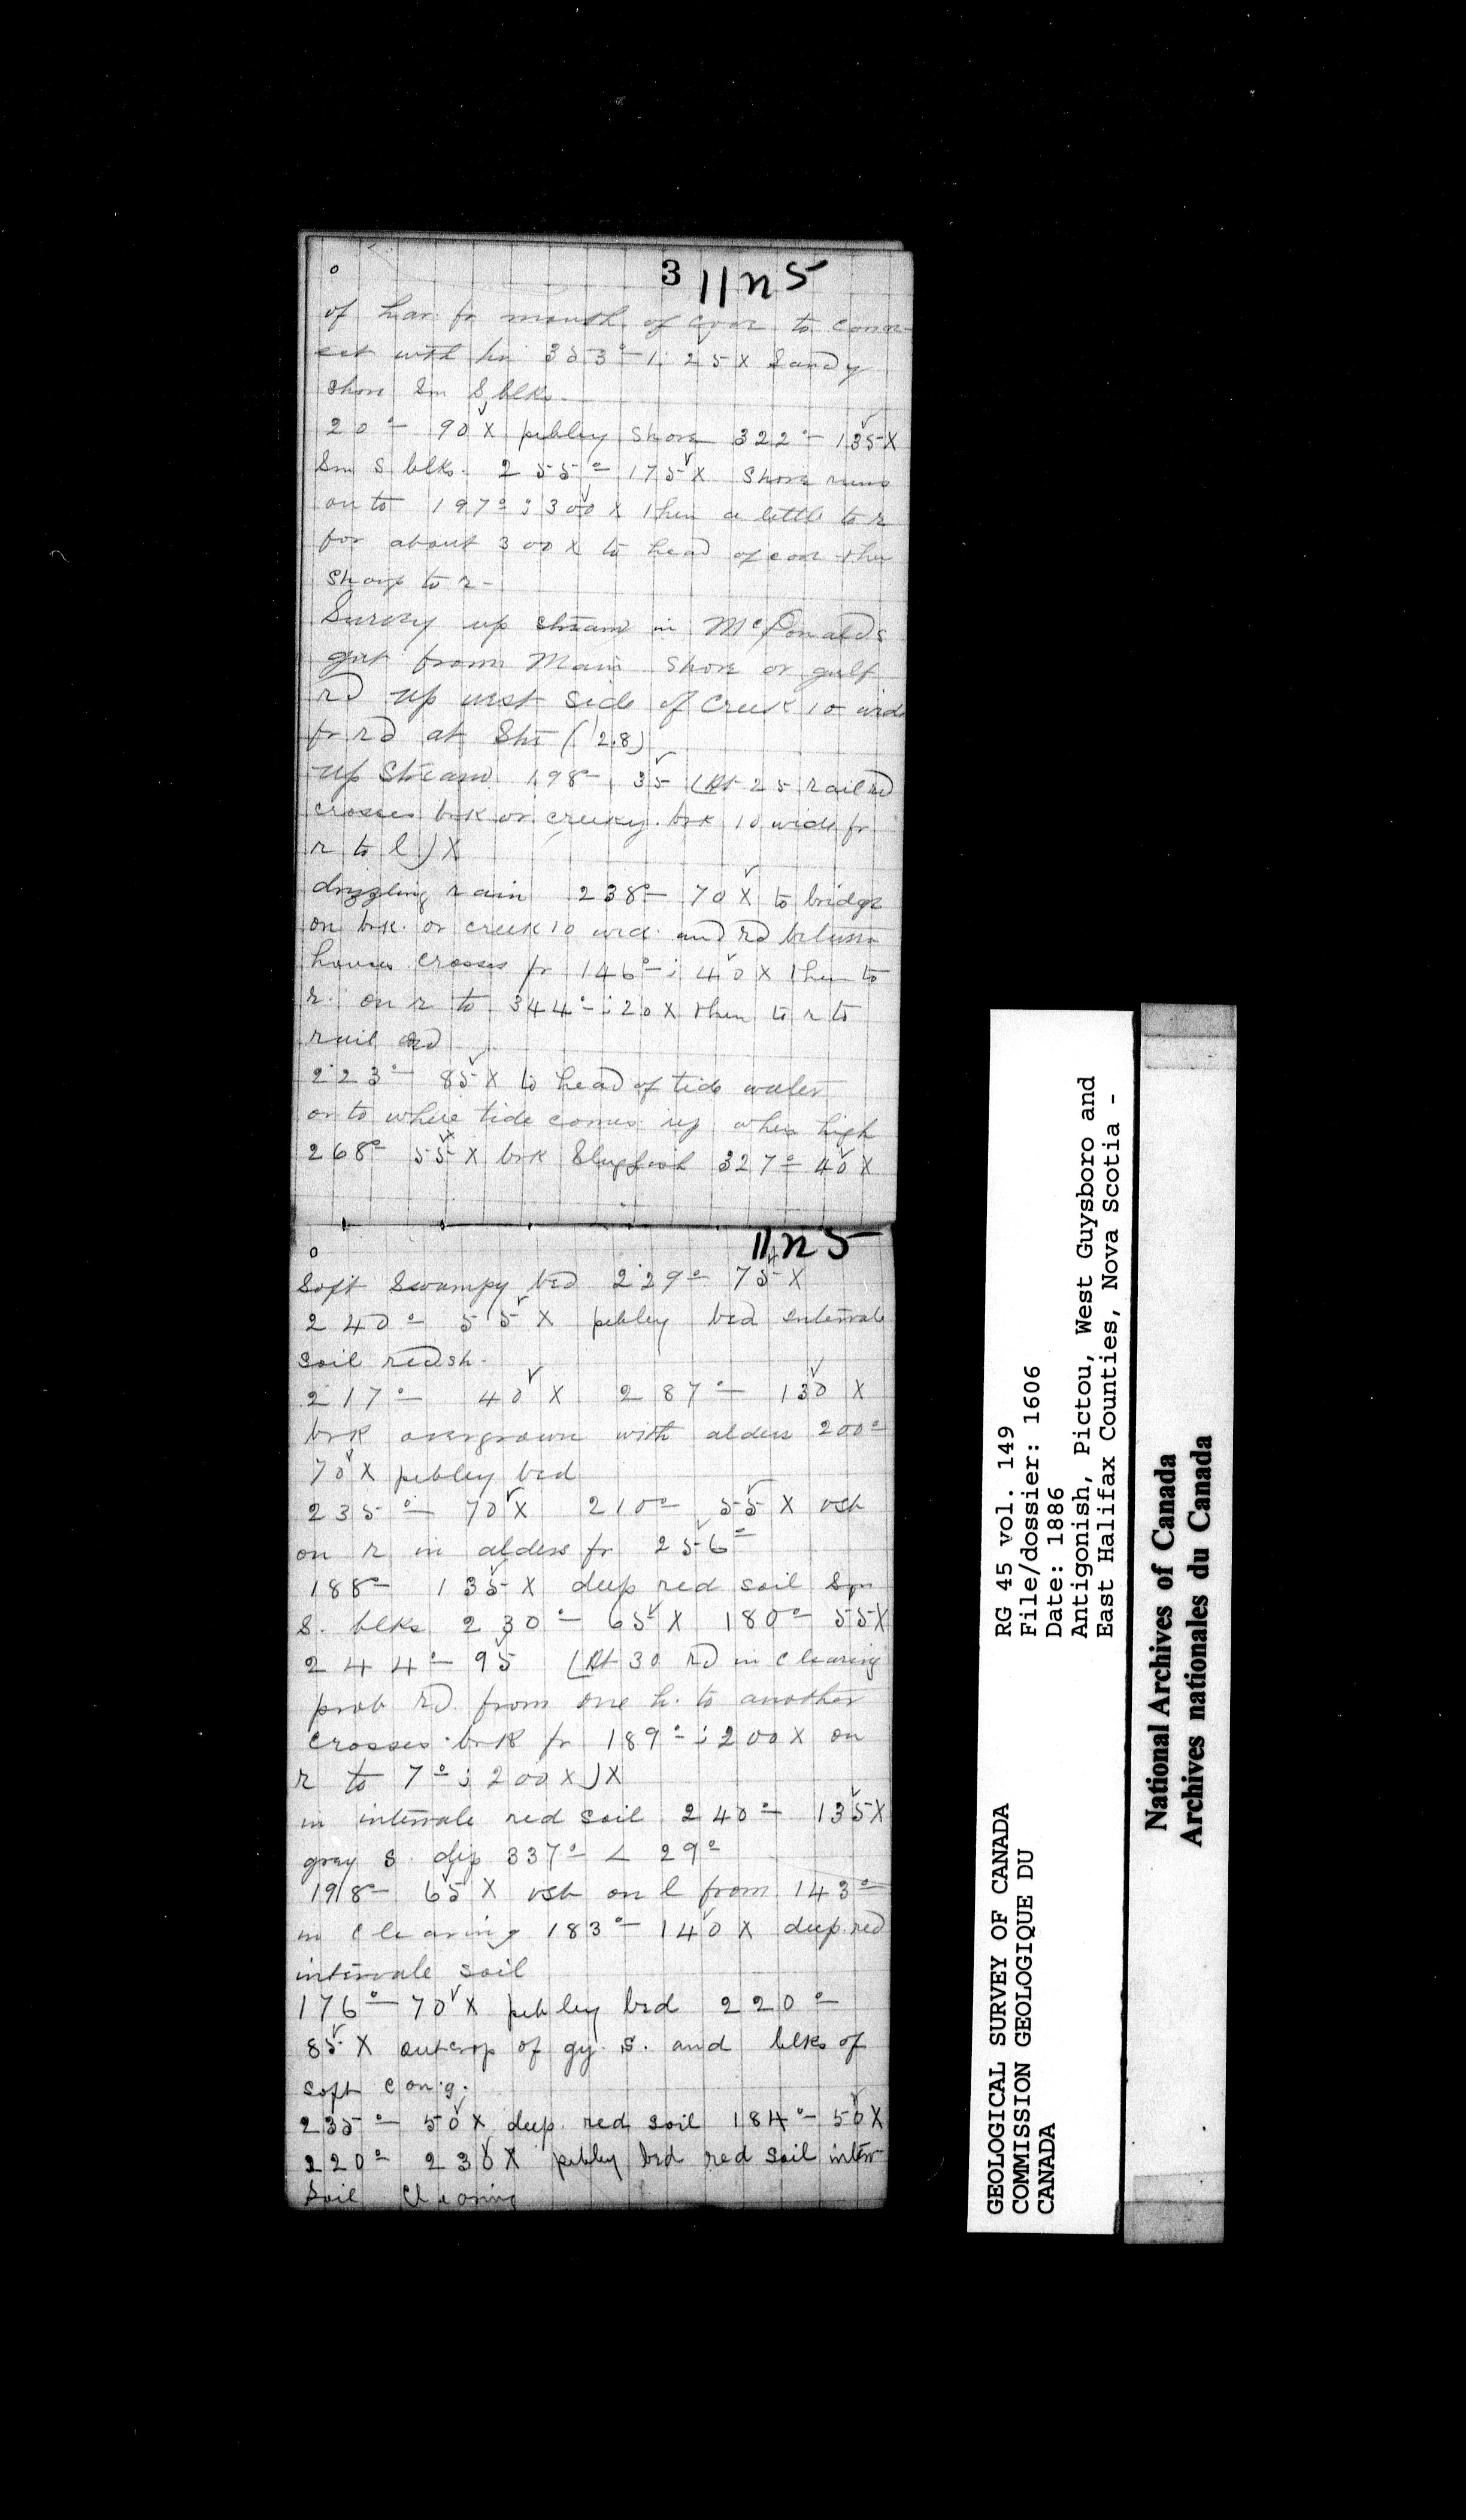 3 11 n 5
of har. fr mouth of cove to conn-
ect with hr 353°- 1: 25 X Sandy
shore Sm S blks.
20°- 90 X pebley shore 322°- 135 X
Sm S blks. 255°- 175 X Shore runs
on to 197° ; 300 X then a little to r
for about 300 X to head of cove then
sharp to r -
Survey up stream in McDonalds
gut from Main shore or gulf
rd up west side of creek 10 wide
fr rd at Stn (12.8)
up stream 198°- 35 (At 25 rail rd
crosses brk or creek brk 10 wide fr
r to l) X
drizzling rain 238°- 70 X to bridge
on brk. or creek 10 wide and rd between
houses crosses fr 146°- ; 40 X then to
r. on r to 344°- ; 20 X then to r to
rail rd
223°- 85 X to head of tide water
or to where tide comes up when high
268°- 55 X brk Sluggish 327°- 40 X
11 n 5
Soft Swampy bed 229°- 75 X
240°- 55 X pebley bed intervale
soil redsh.
217°- 40 X 287°- 130 X
brk overgrown with alders 200°-
70 X pebley bed
235°- 70 X 210°- 55 X vsb
on r in alders fr 256°-
188°- 135 X deep red soil Sm
S. blks 230°- 65 X 180°- 55 X
244°- 95 (At 30 rd in clearing
prob rd. from one h. to another
crosses brk fr 189°- ; 200 X on
r to 7°- ; 200 X) X
in intervale red soil 240°- 135 X
gray s. dip 337°- < 29°
198°- 65 X vsb on l from 143°-
in clearing 183°- 140 X deep red
intervale soil
176°- 70 X pebley bed 220°-
85 X outcrop of gy. s. and blks of
soft cong.
235°- 50 X deep red soil 184°- 50 X
220°- 230 X pebley bed red soil inter
soil Clearing
RG 45 vol. 149
File/dossier: 1606
Date: 1886
Antigonish, Pictou, West Guysboro and
East Halifax Counties, Nova Scotia -
GEOLOGICAL SURVEY OF CANADA
COMMISSION GEOLOGIQUE DU
CANADA
National Archives of Canada
Archives nationales du Canada